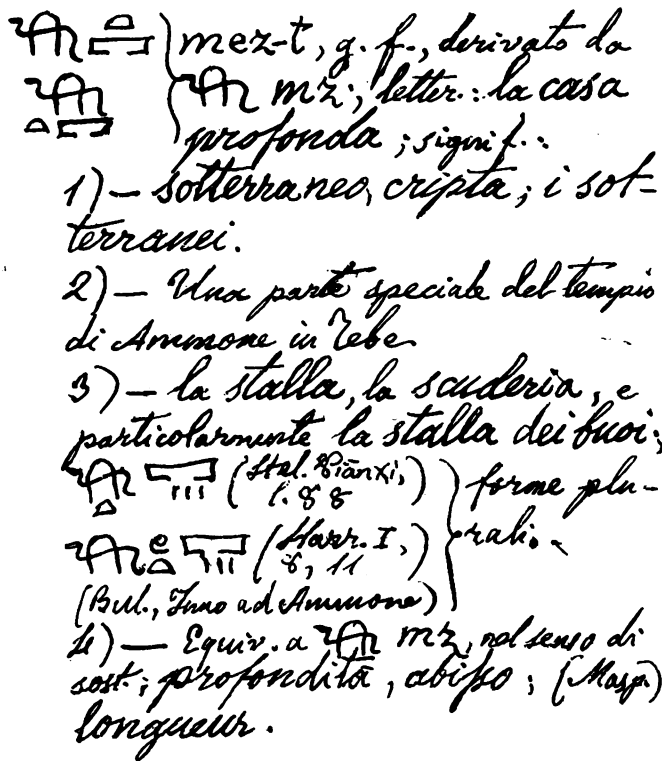 mez-t, g. f., derivato da
mz; letter.: la casa
profonda; signif.:
1)— sotterraneo, cripta; i sot-
terranei.
2)— Una parte speciale del tempio
di Ammone in Tebe.
3)— la stalla, la scuderia, e
particolarmente la stalla dei buoi;
(Stel. Piānχi,
l. 88)
forme plu-
rali.
(Harr. I,
8, 11)
(Bul., Inno ad Ammone)
4)— Equiv. a mz, nel senso di
sost.; profondità, abiſso; (Masp.)
longueur.